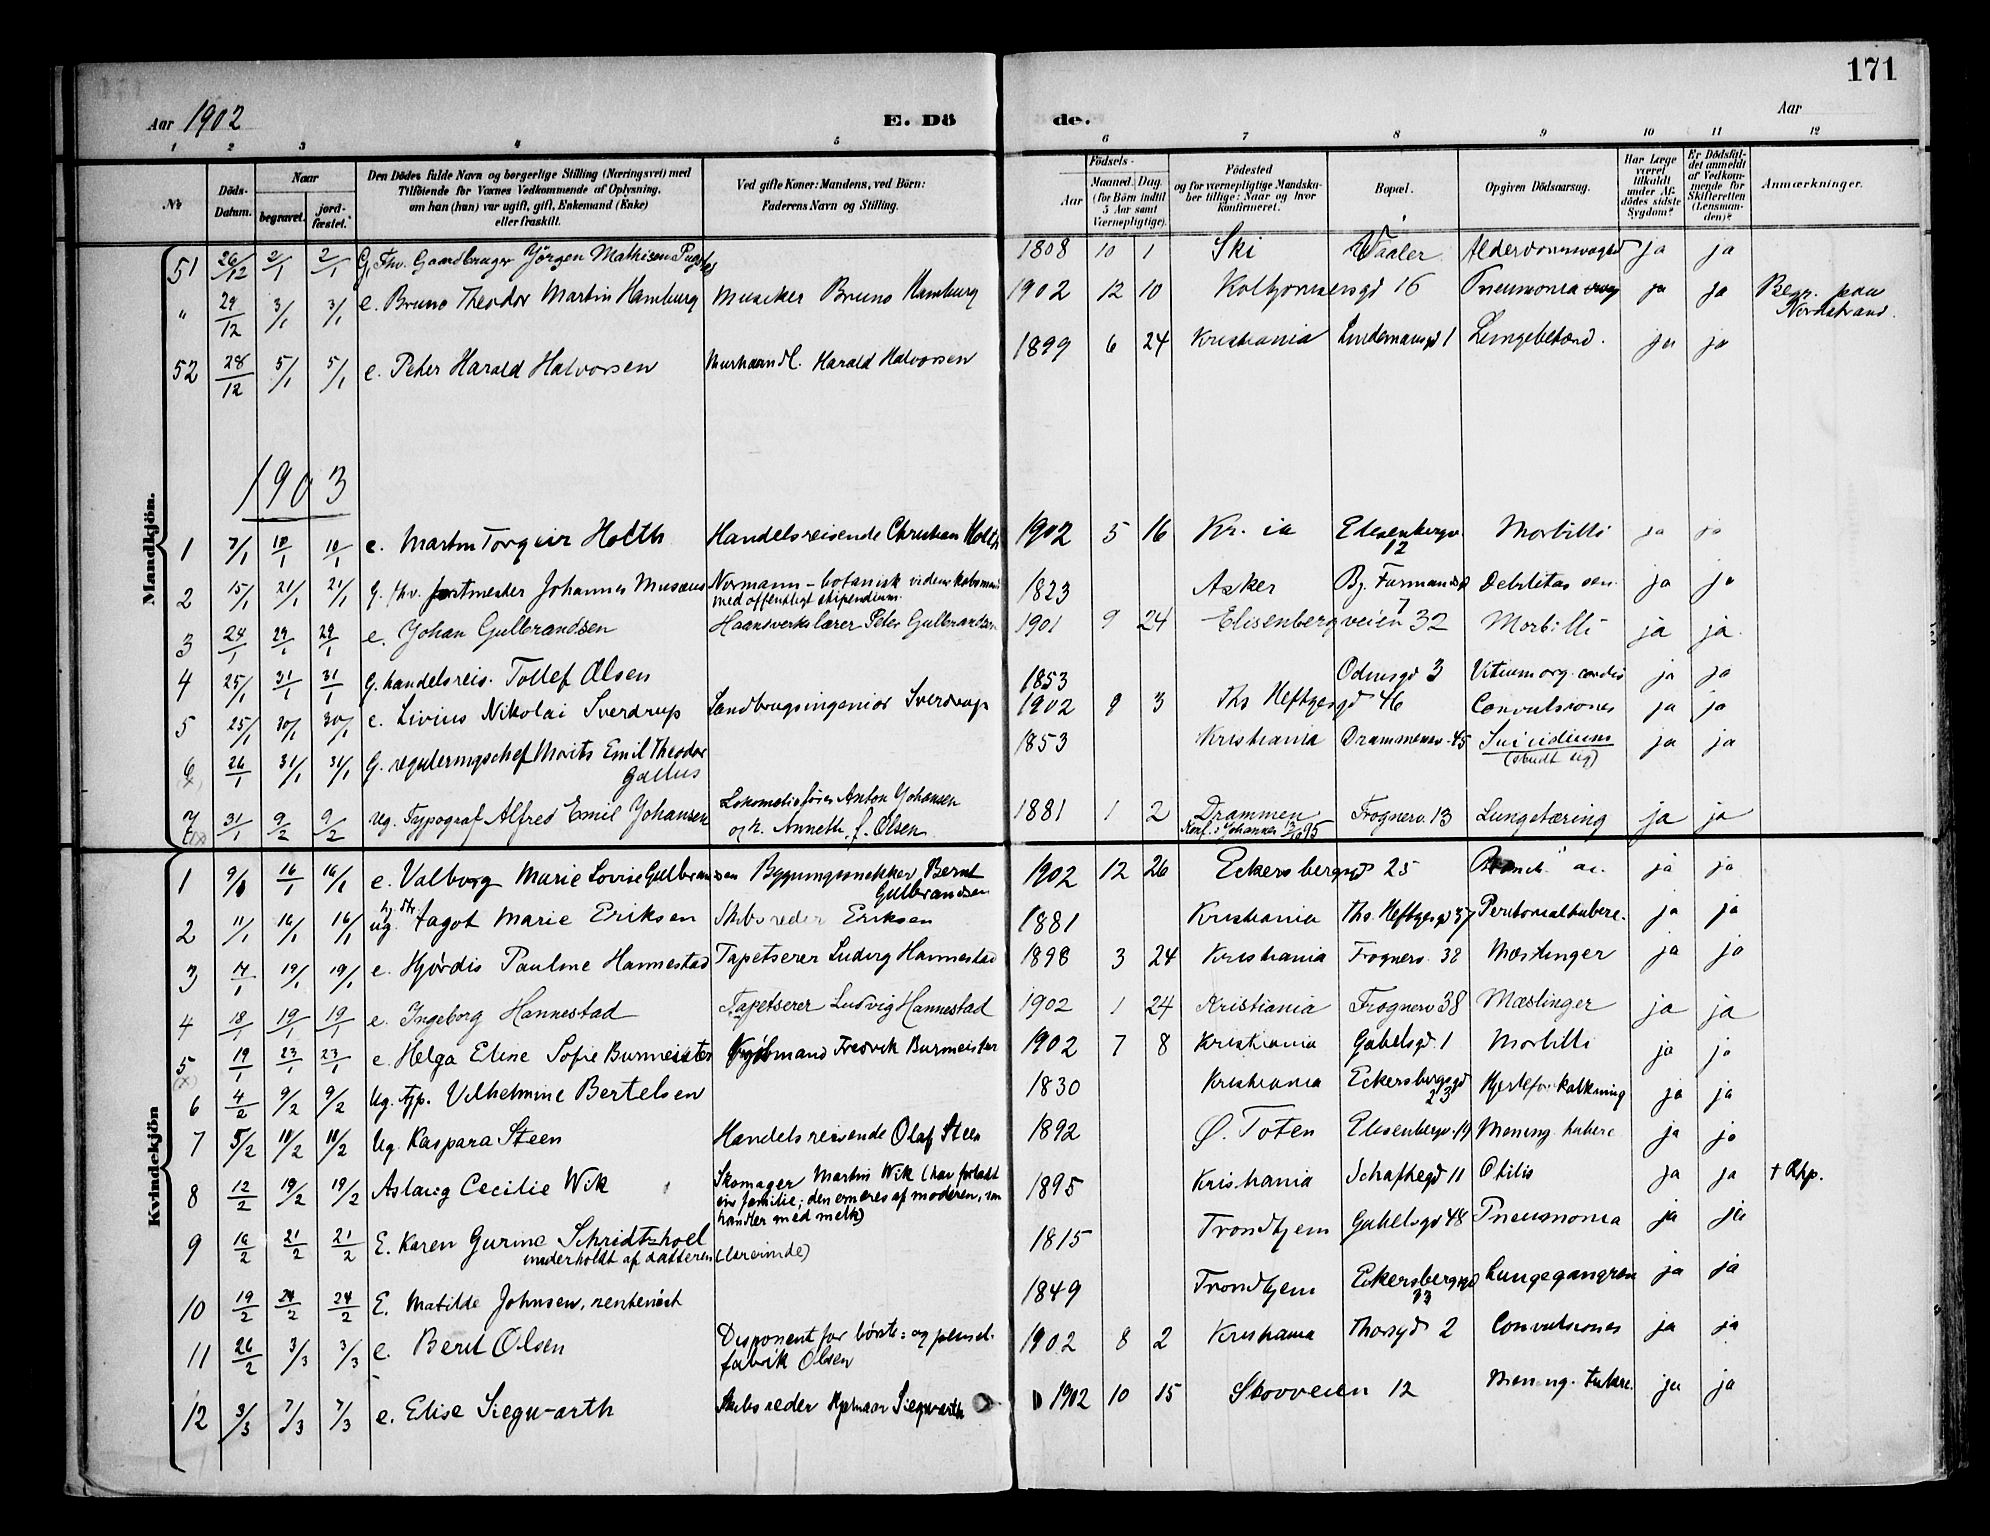 171
Aar 1902
E. Dö
de.
Aar
1 2 3 4 5 6 7 8 9 10 11 12
No
Döds-Datum.
Naar
begravet.
jord-fæstet.
Den Dödes fulde Navn og borgerlige Stilling (Næringsvei) med
Tilföiende for Voxnes Vedkommende af Oplysning,
om han (hun) var ugift, gift, Enkemand (Enke)
eller fraskilt.
Ved gifte Koner: Mandens, ved Börn:
Faderens Navn og Stilling.
Födsels-
Aar
Maaned. Dag.
(for Börn indtil
5 Aar samt
Værnepligtige).
Födested
og for værnepligtige Mandska-
ber tillige: Naar og hvor
konfirmeret.
Bopæl.
Opgiven Dödsaarsag.
Har Læge
været
tilkaldt
under Af-
dödes sidste
Sygdom?
Er Dödsfal-
det anmeldt
af Vedkom-
mende for
Skifteretten
(Lensman-
den)?
Anmærkninger.
Mandkjön.
51 26/12 2/1 2/1 G. Fhv. Gaardbruger Jörgen Mathisen 1808 10 1 Ski Vaaler ja ja
" 29/12 3/1 3/1 e. Bruno Theodor Martin Hamburg Musiker Bruno Hamburg 1902 12 10 Kolbjørnsensgd 16 Pneumonia ja ja Begr. paa
Nordstrand.
52 28/12 5/1 5/1 e. Peter Harald Halvorsen Murhaandl. Harald Halvorsen 1899 6 24 Kristiania Lindemansgd 1 Lungebetænd. ja ja
1903
1 7/1 10/1 10/1 e. Martin Torgeir Holth Handelsreisende Christian Holth 1902 5 16 Kr. ia Elisenbergv. Morbilli ja ja
12
2 15/1 21/1 21/1 G. fhv. forstmester Johannes Musæus Normann - botanisk videnskabsmand 1823 Asker Bj. Farmandsgd Debilitas sen. ja ja
med offentligt stipendium. 7
3 24/1 29/1 29/1 e. Johan Gulbrandsen Haandverkslærer Peter Gulbrandsen 1901 9 24 Elisenbergveien 32 Morbilli ja ja.
4 25/1 31/1 31/1 G. handelsreis. Tollef Olsen 1853 Odinsgd 3 Vitium org. cordis ja ja
5 25/1 30/1 30/1 e. Livius Nikolai Sverdrup Landbrugsingeniør Sverdrup 1902 9 3 Ths Heftyesgd 46 Convulsiones ja ja
6 26/1 31/1 31/1 G. reguleringschef Morits Emil Theodor 1853 Kristiania Drammensv. 45 Suicidium ja ja
Gallus (skudt sig)
7 31/1 9/2 9/2 ug. Typograf Alfred Emil Johansen Lokomotivfører Anton Johansen 1881 1 2 Drammen Frognerv. 13 Lungetæring ja ja
og h. Anneth f. Olsen. Konf. i Johannes 13/10 95
Kvindekjön
1 9/1 16/1 16/1 e. Valborg Marie Lovise Gulbrandsen Bygningssnekker Bernt 1902 12 26 Eckersbergsgd 25 Bronch. ac. ja ja
Gulbrandsen
2 11/1 16/1 16/1 ug. Dagot Marie Eriksen Skibsreder Eriksen 1881 Kristiania Ths. Heftyesgd 37 Peritonealtuberc. ja ja
3 14/1 19/1 19/1 e. Hjørdis Pauline Hannestad Tapetserer Ludvig Hannestad 1898 3 24 Kristiania Frognerv. 38 Mæslinger ja ja
4 18/1 19/1 19/1 e. Ingeborg Hannestad Tapetserer Ludvig Hannestad 1902 1 24 Kristiania Frognerv 38 Mæslinger ja ja
5 19/1 23/1 23/1 e Helga Eline Sofie Burmeister Kjøbmand Fredrik Burmeister 1902 7 8 Kristiania Gabelsgd. 1 Morbilli ja ja
(x)
6 4/2 9/2 9/2 Ug. Vilhelmine Bertelsen 1830 Kristiania Eckersbergsgd Hjerteforkalkning ja ja
23
7 5/2 10/2 10/2 Ug Kaspara Steen Handelsreisende Olaf Steen 1892 Ø. Toten Elisenbergv. 19 Mening. tuberc ja ja
8 12/2 19/2 19/2 Aslaug Cecilie Wik Skomager Martin Wik (har forladt 1895 Kristiania Schaftegd 11 Otitis ja ja † Rhp.
sin familie; den ernæres af moderen, som
handler med melk)
9 16/2 21/2 21/2 E. Karen Gurine Schridtshoel 1815 Trondhjem Gabelsgd 48 Pneumonia ja ja
underholdt af datteren (lærerinde)
10 19/2 24/2 24/2 E. Matilde Johnsen, rentenist 1849 Trondhjem Eckersbergsgd Lungegangræn ja ja
33
11 26/2 3/3 3/3 e. Berit Olsen Disponent for børste- og pensel- 1902 8 2 Kristiania Thorsgd 2 Convulsiones ja ja
fabrik Olsen
12 3/3 7/3 7/3 e. Elise Siegwarth Skibsreder Hjalmar Siegwarth 1902 10 15 Skovveien 12 Mening. tuberc. ja ja